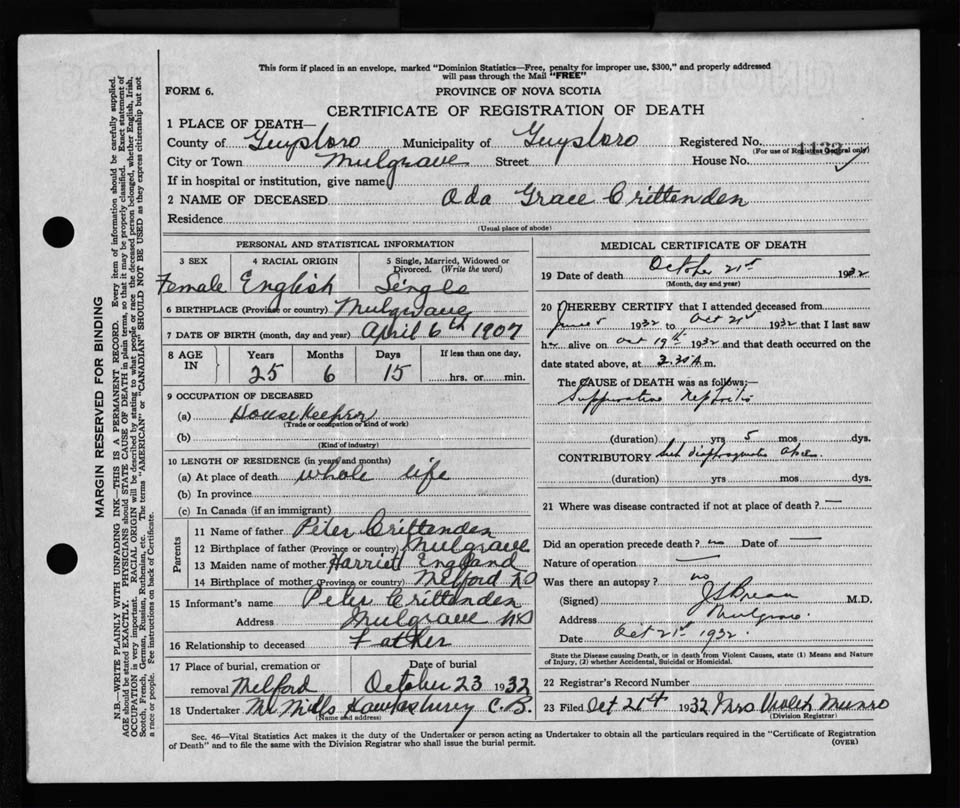 This form if placed in an envelope, marked "Dominion Statistics—Free, penalty for improper use, $300," and properly addressed
will pass through the Mail "FREE"
FORM 6.
PROVINCE OF NOVA SCOTIA
CERTIFICATE OF REGISTRATION OF DEATH
1 PLACE OF DEATH—
County of Guysboro Municipality of Guysboro Registered No. 1132
(For use of Registrar General only)
City or Town Mulgrave Street House No.
If in hospital or institution, give name
2 NAME OF DECEASED Ada Grace Crittenden
Residence
(Usual place of abode)
PERSONAL AND STATISTICAL INFORMATION
3 SEX 4 RACIAL ORIGIN 5 Single, Married, Widowed or
Divorced. (Write the word)
Female English Single
6 BIRTHPLACE (Province or country) Mulgrave
7 DATE OF BIRTH (month, day and year) April 6th 1907
8 AGE IN Years Months Days If less than one day,
25 6 15 hrs. or min.
9 OCCUPATION OF DECEASED
(a) Housekeeper
(Trade or occupation or kind of work)
(b)
(Kind of industry)
10 LENGTH OF RESIDENCE (in years and months)
(a) At place of death whole life
(b) In province
(c) In Canada (if an immigrant)
Parents
11 Name of father Peter Crittenden
12 Birthplace of father (Province or country) Mulgrave
13 Maiden name of mother Harriet England
14 Birthplace of mother (Province or country) Melford NS
15 Informant's name Peter Crittenden
Address Mulgrave NS
16 Relationship to deceased Father
17 Place of burial, cremation or Date of burial
removal Melford October 23 1932
18 Undertaker Mr Mills Hawkesbury C.B.
(Name and address)
MEDICAL CERTIFICATE OF DEATH
19 Date of death October 21st 1932
(Month, day and year)
20 I HEREBY CERTIFY that I attended deceased from
June 5 1932 to Oct 21st 1932 that I last saw
her alive on Oct 19th 1932 and that death occurred on the
date stated above, at 3.30 A.m.
The CAUSE of DEATH was as follows:—
Suppurative Nephritis
(duration) yrs 5 mos dys.
CONTRIBUTORY
(duration) yrs mos dys.
21 Where was disease contracted if not at place of death? —
Did an operation precede death? no Date of —
Nature of operation —
Was there an autopsy? no
(Signed) M.D.
Address Mulgrave
Date Oct 21st 1932
State the Disease causing Death, or in death from Violent Causes, state (1) Means and Nature
of Injury, (2) whether Accidental, Suicidal or Homicidal.
22 Registrar's Record Number
23 Filed Oct 21st 1932 Mrs Violet Munro
(Division Registrar)
Sec. 46—Vital Statistics Act makes it the duty of the Undertaker or person acting as Undertaker to obtain all the particulars required in the "Certificate of Registration
of Death" and to file the same with the Division Registrar who shall issue the burial permit. (OVER)
MARGIN RESERVED FOR BINDING
N.B.—WRITE PLAINLY WITH UNFADING INK—THIS IS A PERMANENT RECORD. Every item of information should be carefully supplied.
AGE should be stated EXACTLY. PHYSICIANS should STATE CAUSE OF DEATH in plain terms, so that it may be properly classified. Exact statement of
OCCUPATION is very important. RACIAL ORIGIN will be described by stating to what people or race the deceased person belonged, whether English, Irish,
Scotch, French, German, Russian, Ruthenian, etc. The terms "AMERICAN" or "CANADIAN" SHOULD NOT BE USED as they express citizenship but not
a race or people. Fee instructions on back of Certificate.